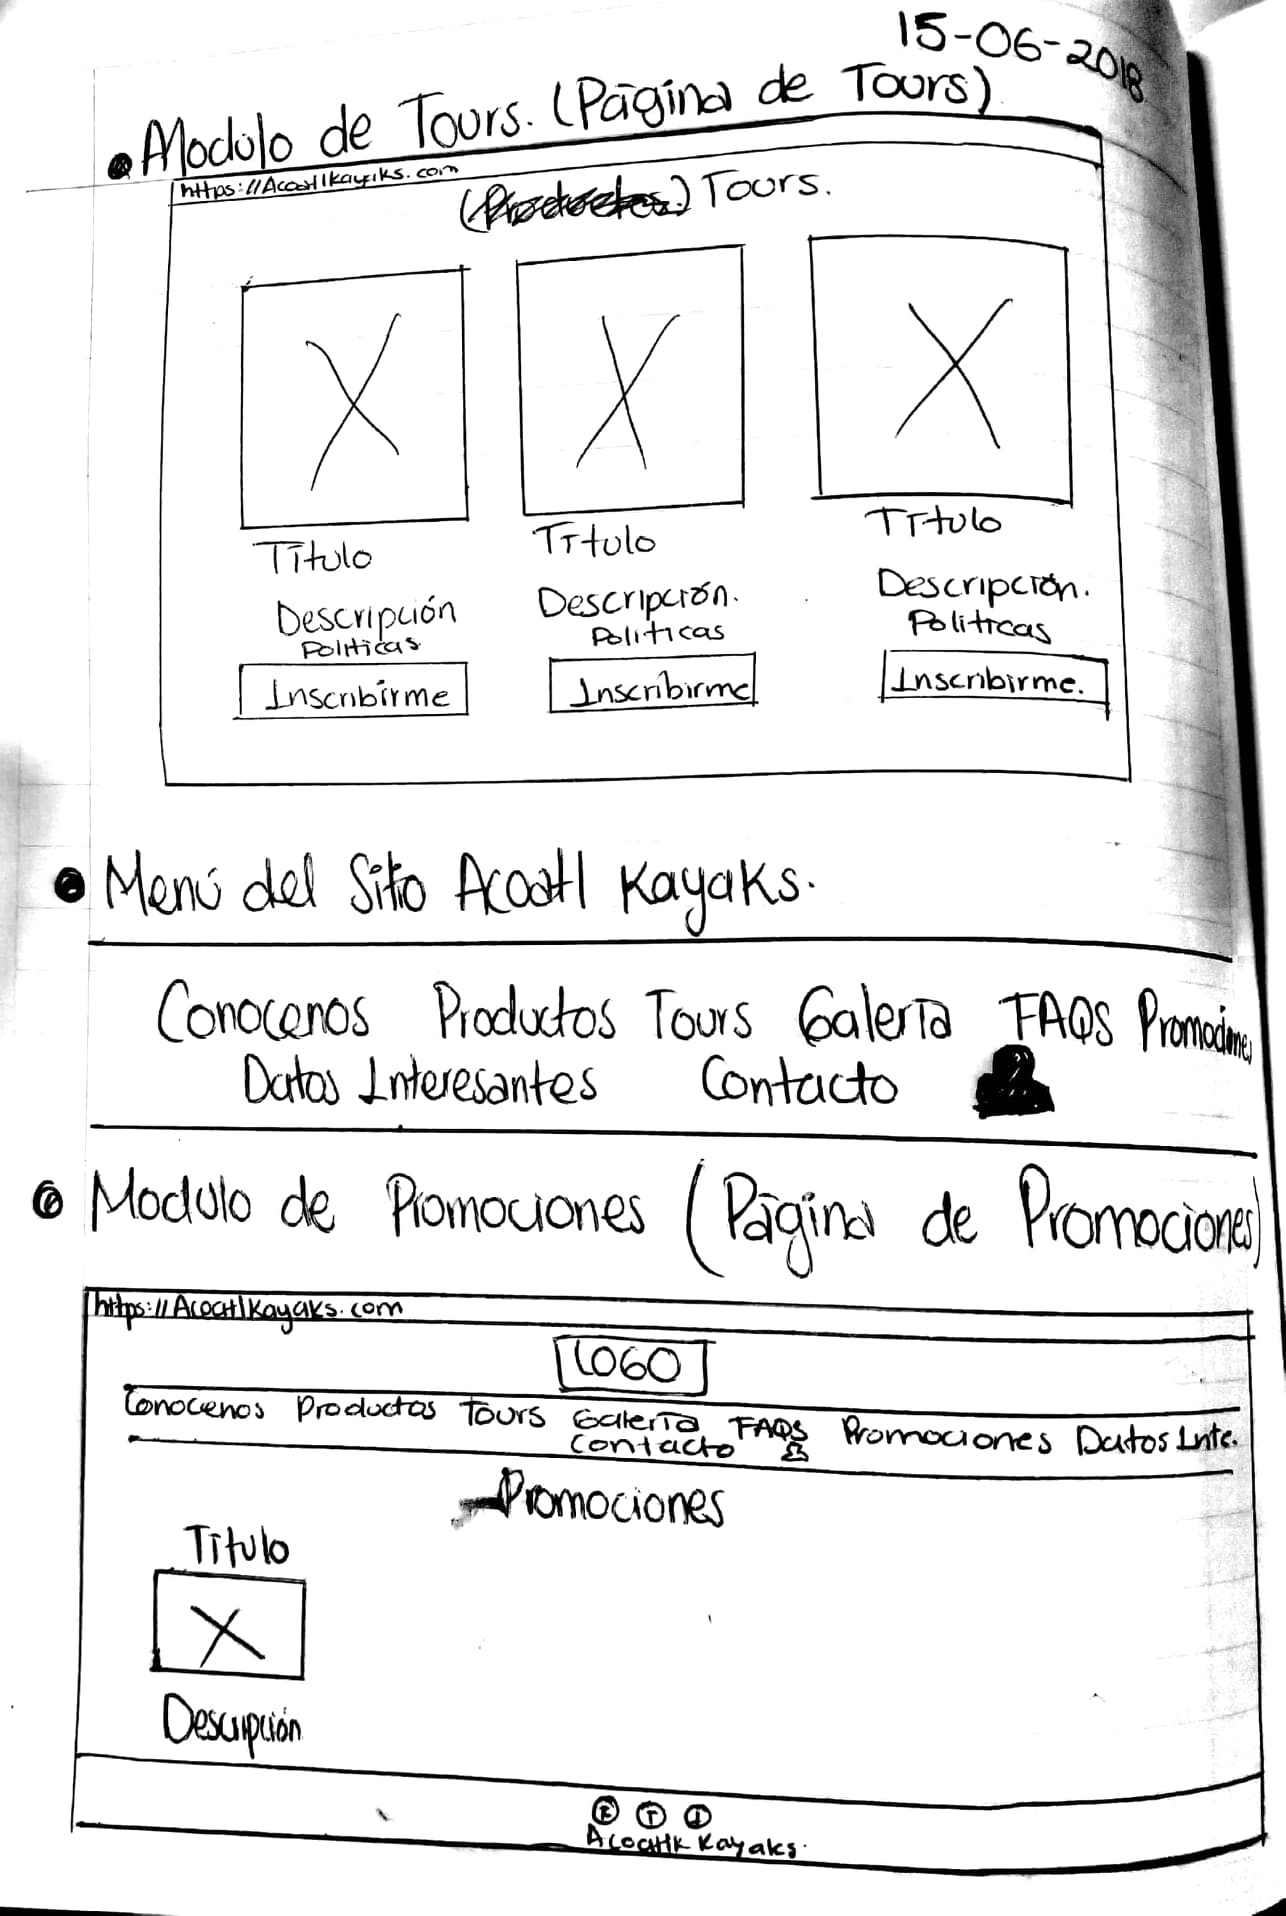 15-06-2018
Modulo de Tours. (Página de Tours)
https://Acoatlkayaks.com
(Productos.) Tours.
Título Título Título
Descripción Descripción. Descripción.
Politicas Politicas Politicas
Inscribirme Inscribirme Inscribirme.
Menú del Sitio Acoatl Kayaks.
Conocenos Productos Tours Galería FAQS Promociones
Datos Interesantes Contacto
Modulo de Promociones (Página de Promociones)
https://AcoatlKayaks.com
LOGO
Conocenos Productos Tours Galería FAQS Promociones Datos Inte.
Contacto
Promociones
Título
Descripción
F T I
Acoatlk Kayaks.